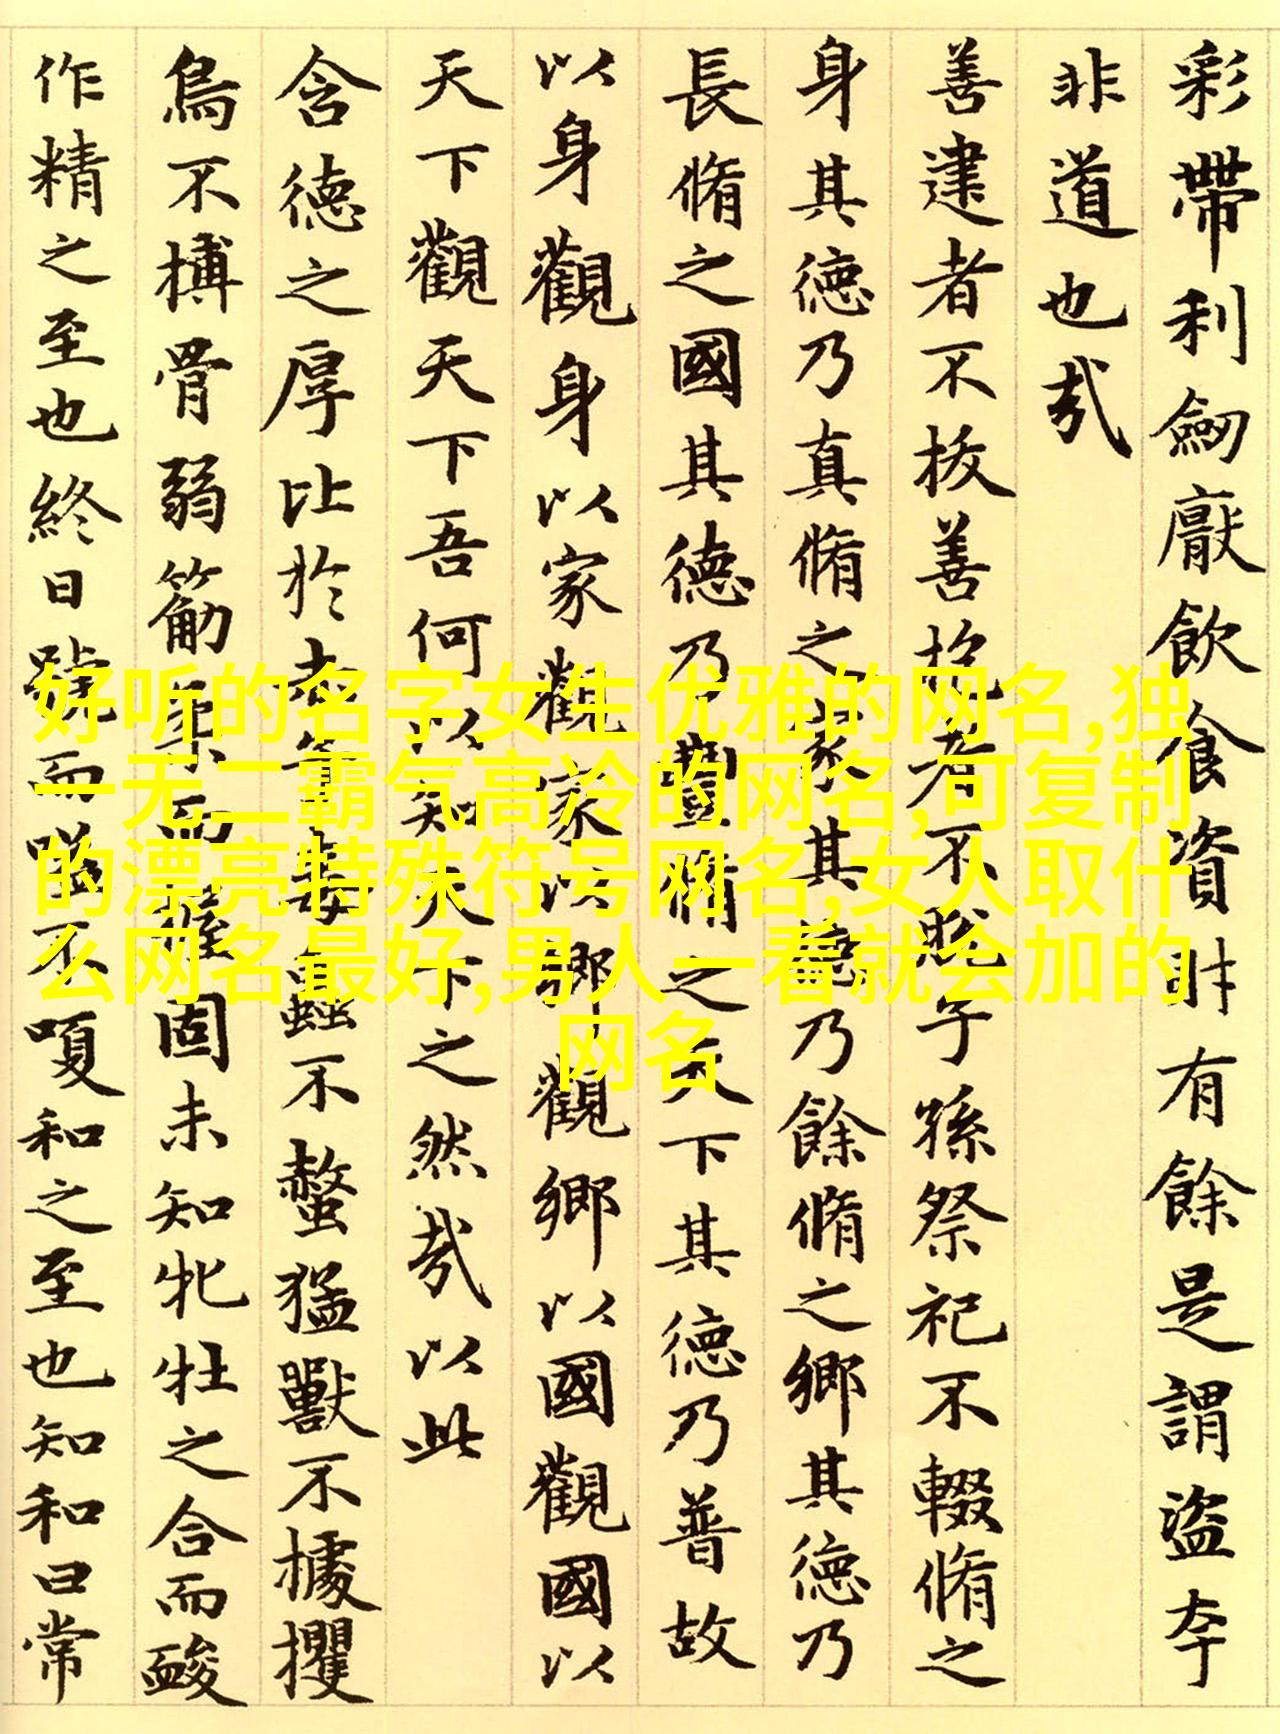 彩帶利劔厭飲食資財有餘是謂盗夸
非道也㢤
善建者不拔善抱者不脱子孫祭祀不輟脩之
身其德乃真脩之家其德乃餘脩之鄉其德乃
長脩之國其德乃豐脩之天下其德乃普故
以身觀身以家觀家以鄉觀鄉以國觀國以
天下觀天下吾何以知天下之然㢤以此
含德之厚比於赤子毒蟲不螫猛獸不據攫
鳥不搏骨弱筋柔而握固未知牝牡之合而酸
作精之至也終日號而嗌不嗄和之至也知和曰常
好听的名字女生优雅的网名,独
一无二霸气高冷的网名,可复制
的漂亮特殊符号网名,女人取什
么网名最好,男人一看就会加的
网名